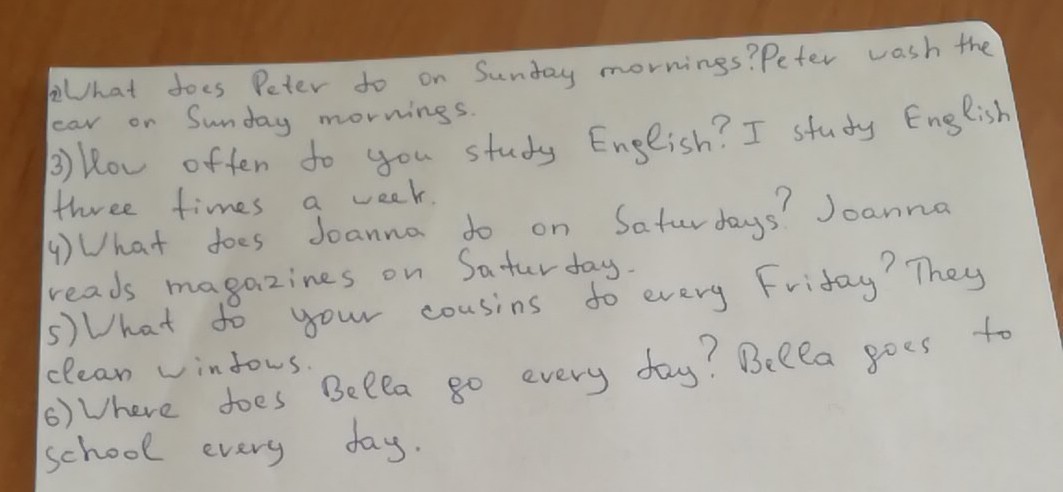 2)What does Peter do on Sunday mornings?Peter wash the
car on Sunday mornings.
3)How often do you study English? I study English
three times a week.
4)What does Joanna do on Saturdays? Joanna
reads magazines on Saturday.
5)What do your cousins do every Friday? They
clean windows.
6)Where does Bella go every day? Bella goes to
school every day.